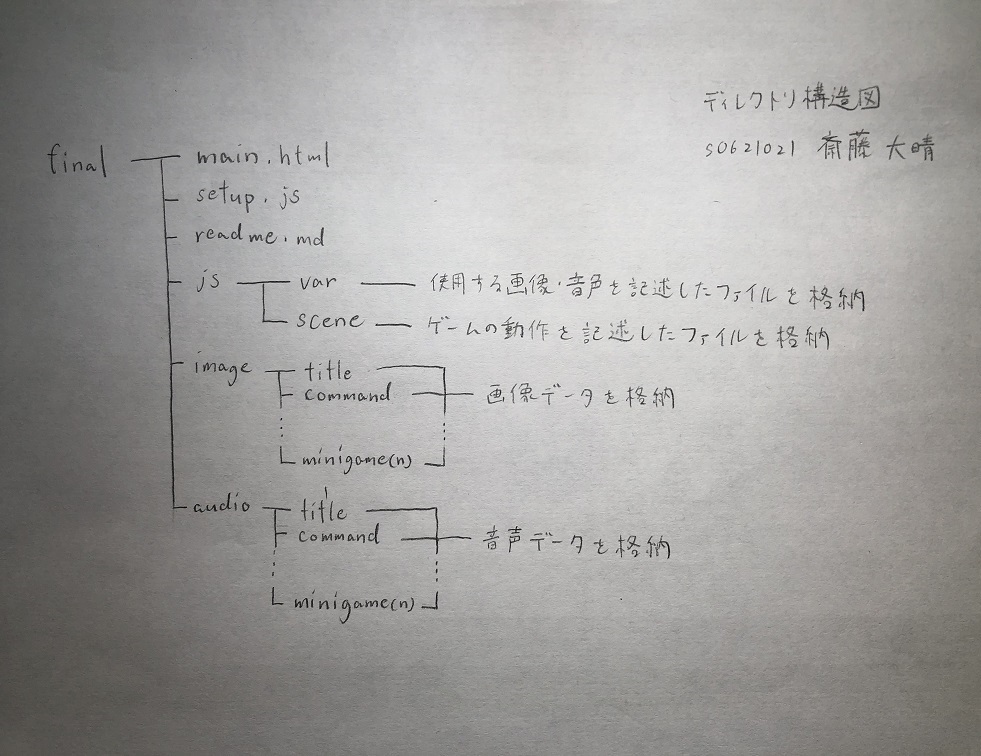 ディレクトリ構造図
s0621021 斎藤 大晴
final
main.html
setup.js
readme.md
js
var
使用する画像・音声を記述したファイルを格納
scene
ゲームの動作を記述したファイルを格納
image
title
command
画像データを格納
minigame(n)
audio
title
command
音声データを格納
minigame(n)